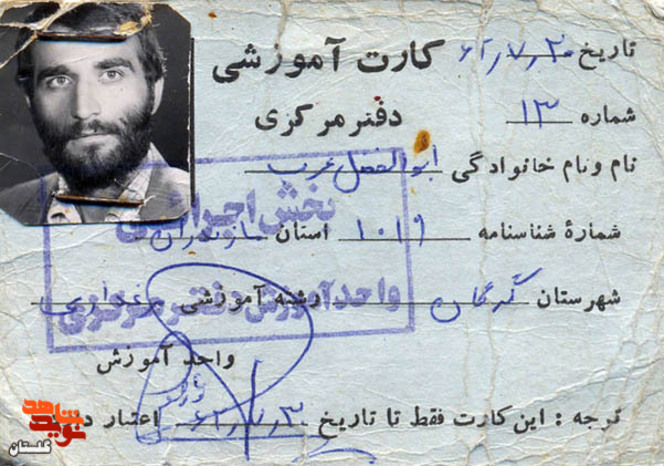 کارت آموزشی تاریخ ۶۲٫۷٫۲۰
دفتر مرکزی شماره ۱۳
نام و نام خانوادگی ابوالفضل عرب
شمارهٔ شناسنامه ۱۰۱۹ استان مازندران
شهرستان گرگان رشته آموزشی مرغداری
واحد آموزش
توجه : این کارت فقط تا تاریخ ۶۲٫۷٫۳۰ اعتبار دارد
بخش اجرائی
واحد آموزش دفتر مرکزی
نوید شاهد
گلستان